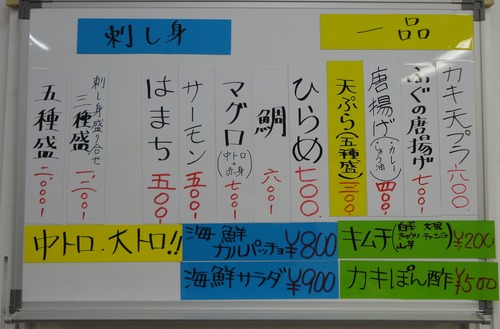 刺し身
一品
カキ天プラ 六〇〇
ふぐの唐揚げ 七〇〇-
唐揚げ(・カレー ・しょう油) 四〇〇
天ぷら(五種盛) 三〇〇
ひらめ 七〇〇-
鯛 六〇〇-
マグロ(中トロ + 赤身) 七〇〇-
サーモン 五〇〇-
はまち 五〇〇
刺し身盛り合せ
三種盛 一、二〇〇-
五種盛 二、〇〇〇-
中トロ.大トロ!!
海鮮
カルパッチョ ¥800
キムチ(白菜 大根 きゅうり チャンジャ 山芋) ¥200
海鮮サラダ ¥900
カキぽん酢 ¥500